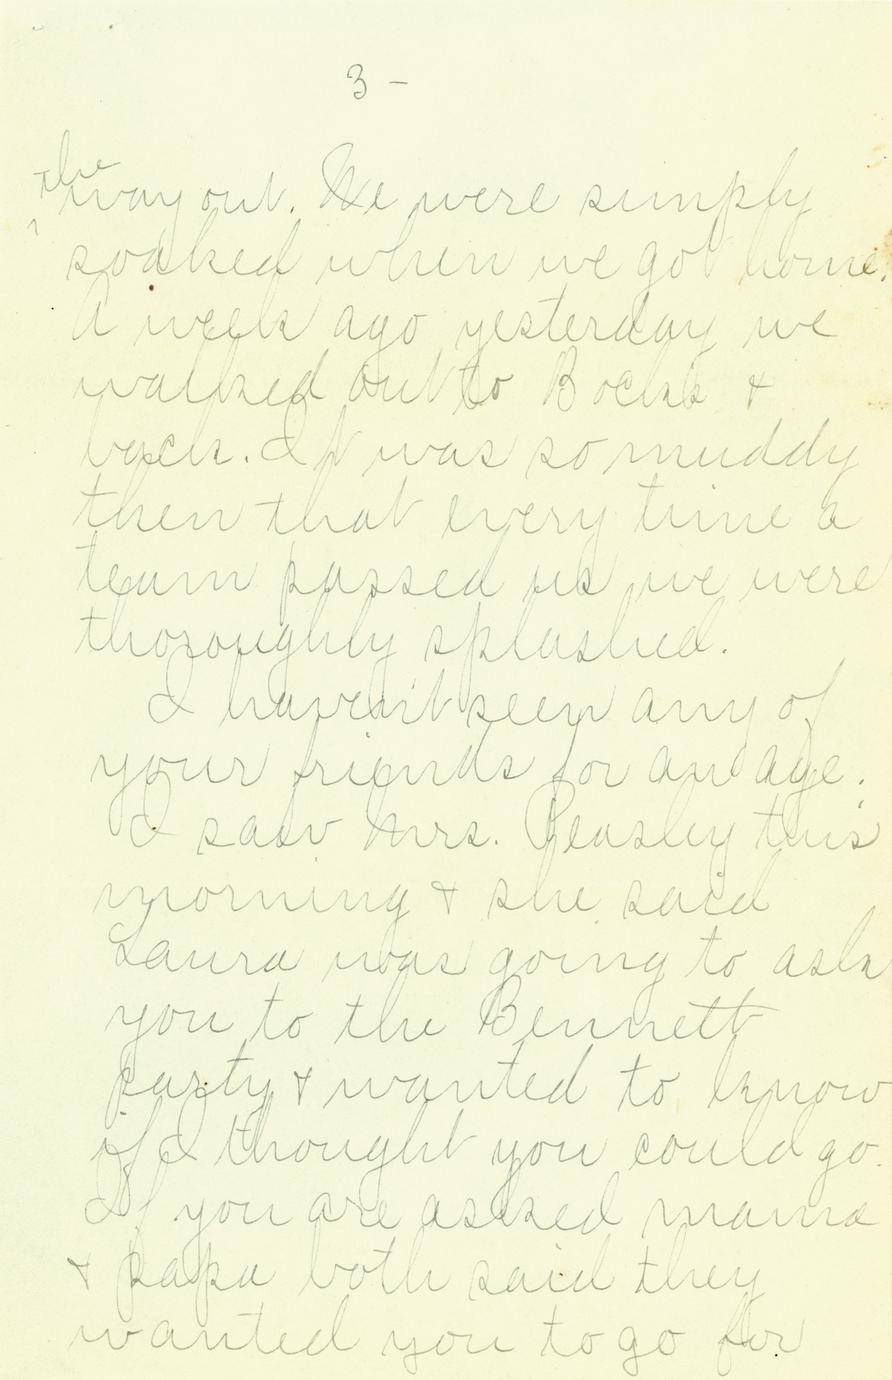 3 -
the
way out. We were simply
soaked when we got home.
A week ago yesterday we
walked out to Bocks &
back. It was so muddy
then that every time a
team passed us we were
thoroughly splashed.
I haven't seen any of
your friends for an age.
I saw Mrs. Peasley this
morning & she said
Laura was going to ask
you to the Bennett
party & wanted to know
if I thought you could go.
If you are asked mama
& papa both said they
wanted you to go for